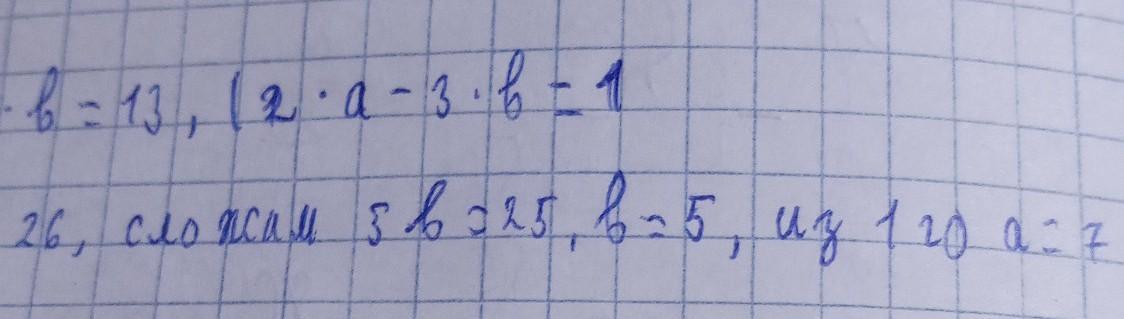 · b = 13, (2 · a - 3 · b = 1
26, сложим 5 b = 25, b = 5, из 1 го a = 7